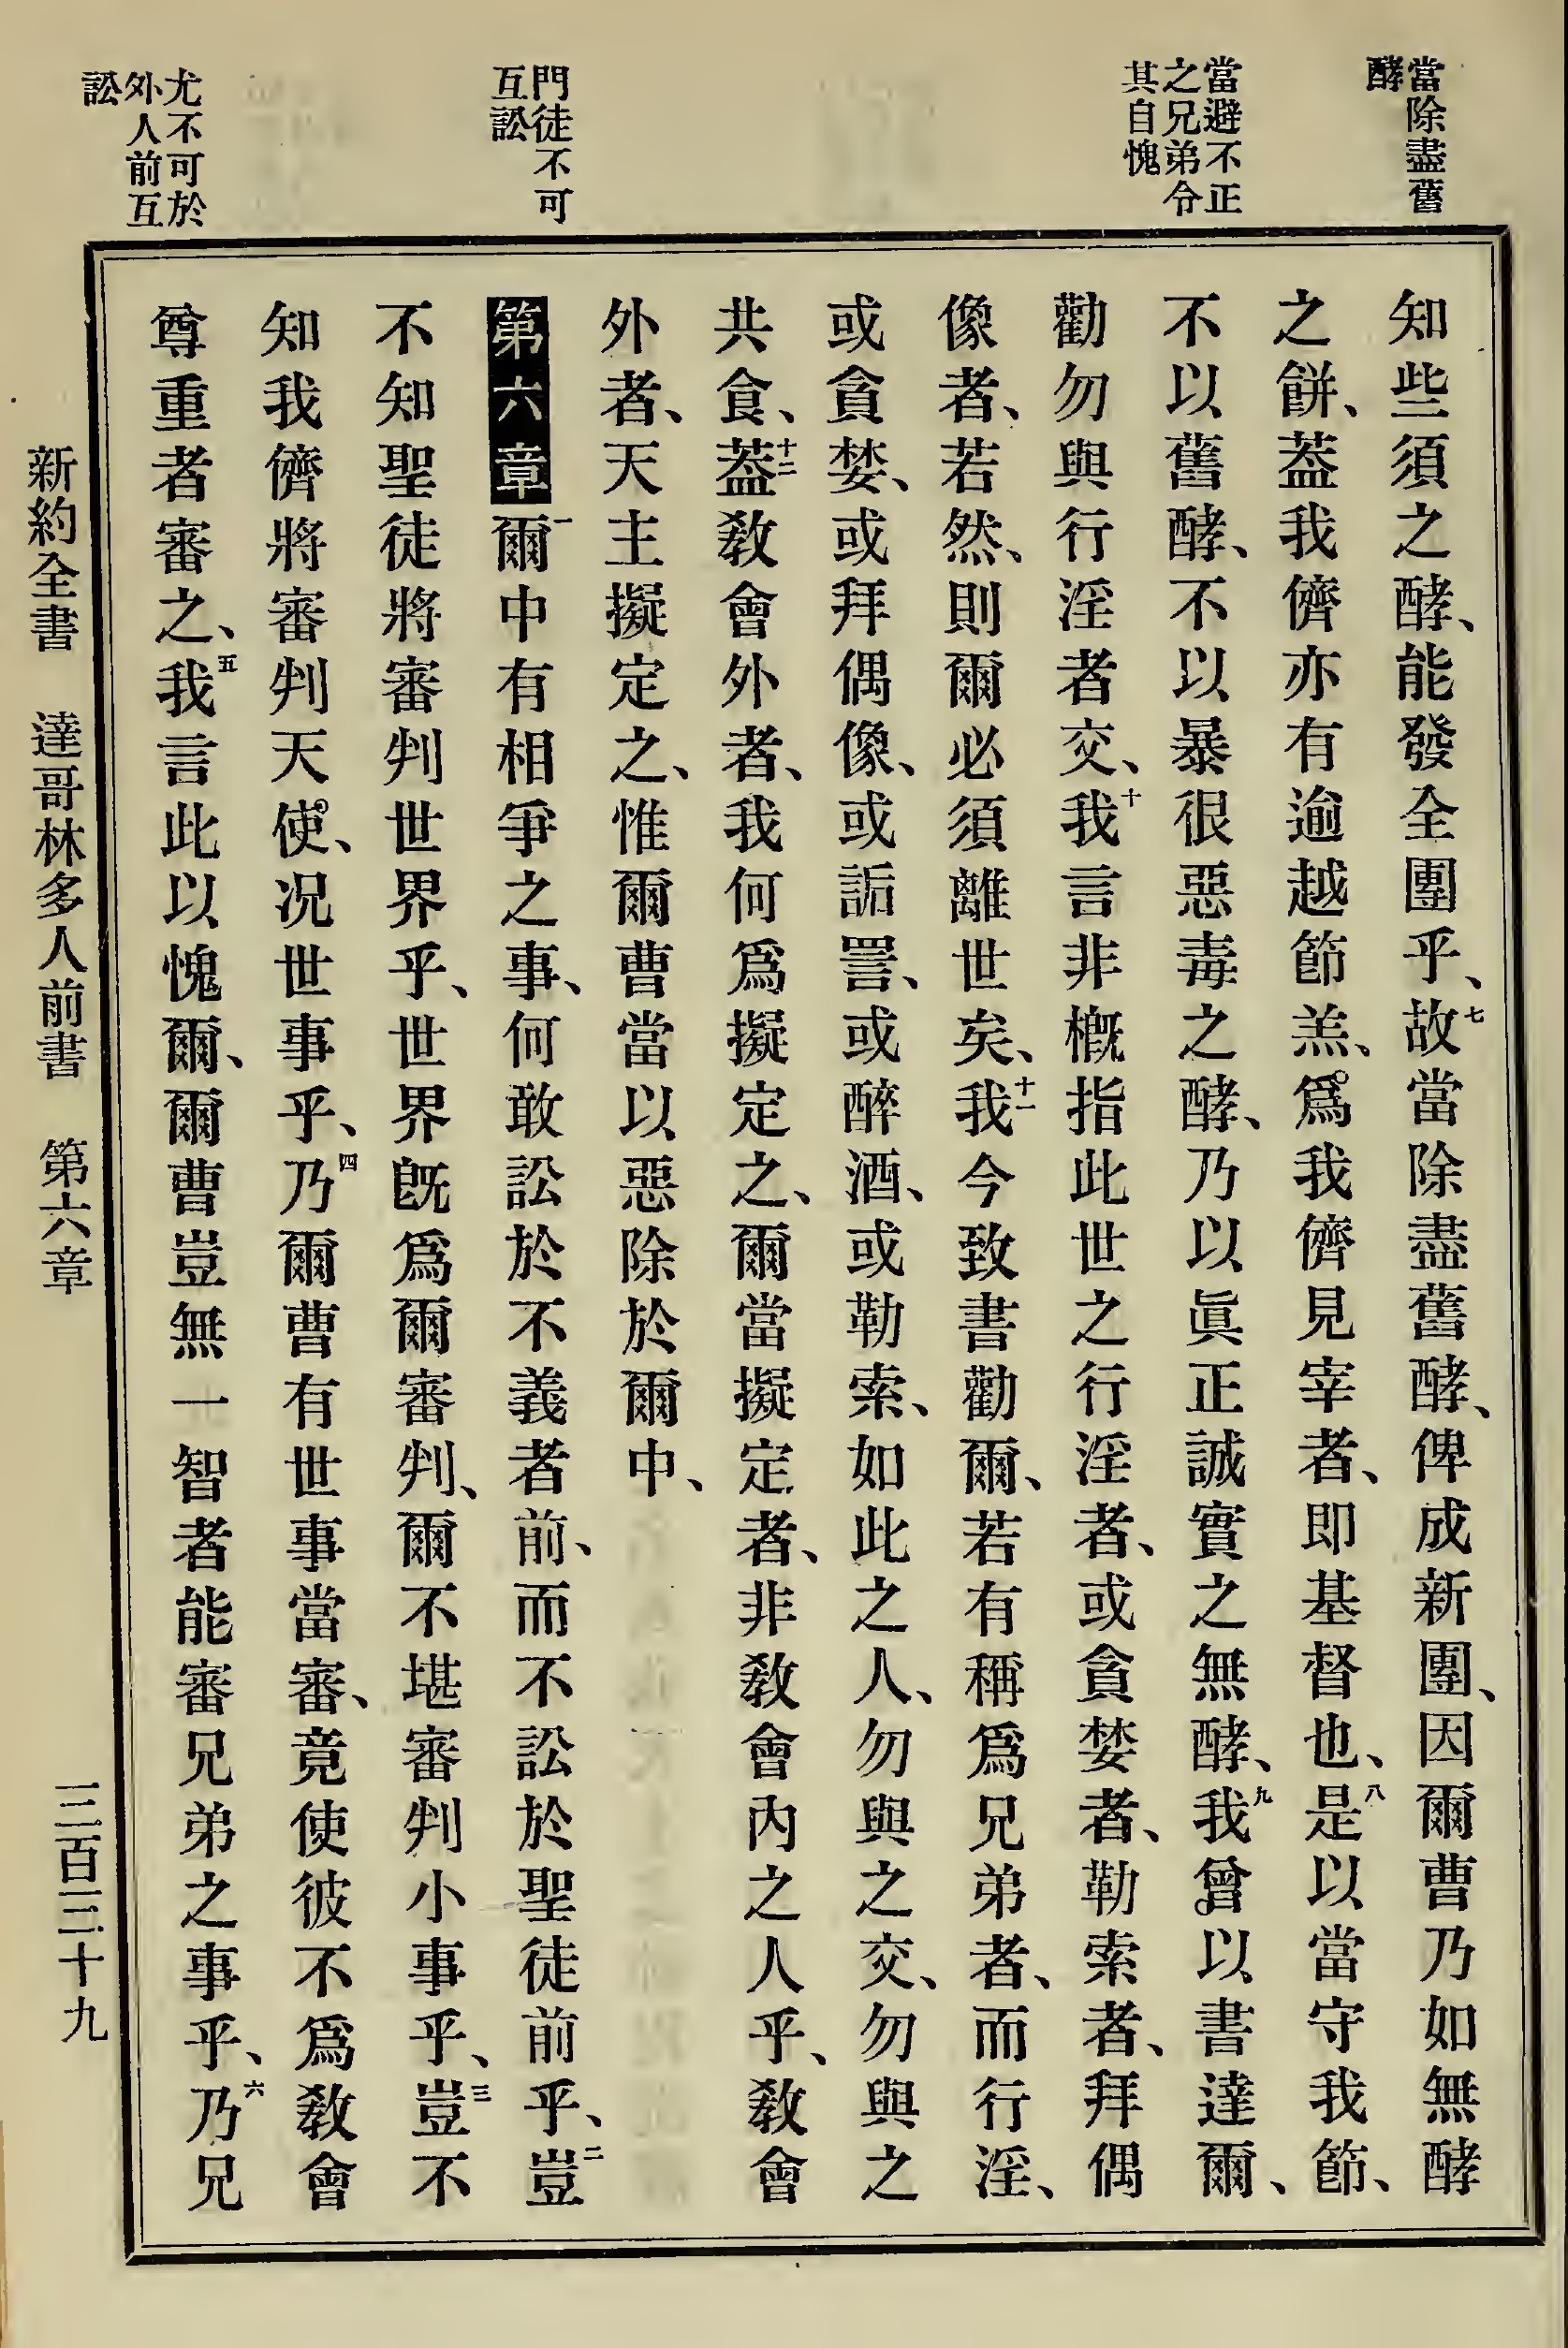 當除盡舊
酵
當避不正
之兄弟令
其自愧
門徒不可
互訟
尤不可於
外人前互
訟
知些須之酵、能發全團乎、七故當除盡舊酵、俾成新團、因爾曹乃如無酵
之餅、蓋我儕亦有逾越節羔、爲我儕見宰者、即基督也、八是以當守我節、
不以舊酵、不以暴很惡毒之酵、乃以眞正誠實之無酵、九我曾以書達爾、
勸勿與行淫者交、十我言非槪指此世之行淫者、或貪婪者、勒索者、拜偶
像者、若然、則爾必須離世矣、十一我今致書勸爾、若有稱爲兄弟者、而行淫、
或貪婪、或拜偶像、或詬詈、或醉酒、或勒索、如此之人、勿與之交、勿與之
共食、十二蓋敎會外者、我何爲擬定之、爾當擬定者、非敎會內之人乎、敎會
外者、天主擬定之、惟爾曹當以惡除於爾中、
第六章 一爾中有相爭之事、何敢訟於不義者前、而不訟於聖徒前乎、二豈
不知聖徒將審判世界乎、世界旣爲爾審判、爾不堪審判小事乎、三豈不
知我儕將審判天使、况世事乎、四乃爾曹有世事當審、竟使彼不爲敎會
尊重者審之、五我言此以愧爾、爾曹豈無一智者能審兄弟之事乎、六乃兄
新約全書 達哥林多人前書 第六章 三百三十九